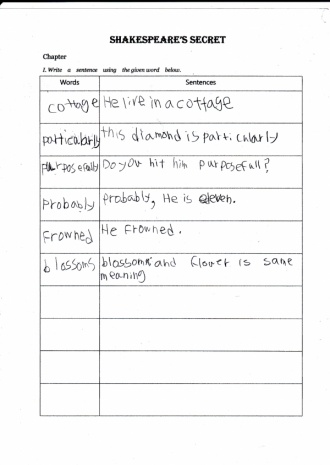 SHAKESPEARE'S SECRET
Chapter
I. Write a sentence using the given word below.
Words Sentences
cottage He live in a cottage
particularly this diamond is particularly
purposefully Do you hit him purposefull?
Probably probably, He is eleven.
Frowned He Frowned.
blossoms blossom and flower is same
meaning